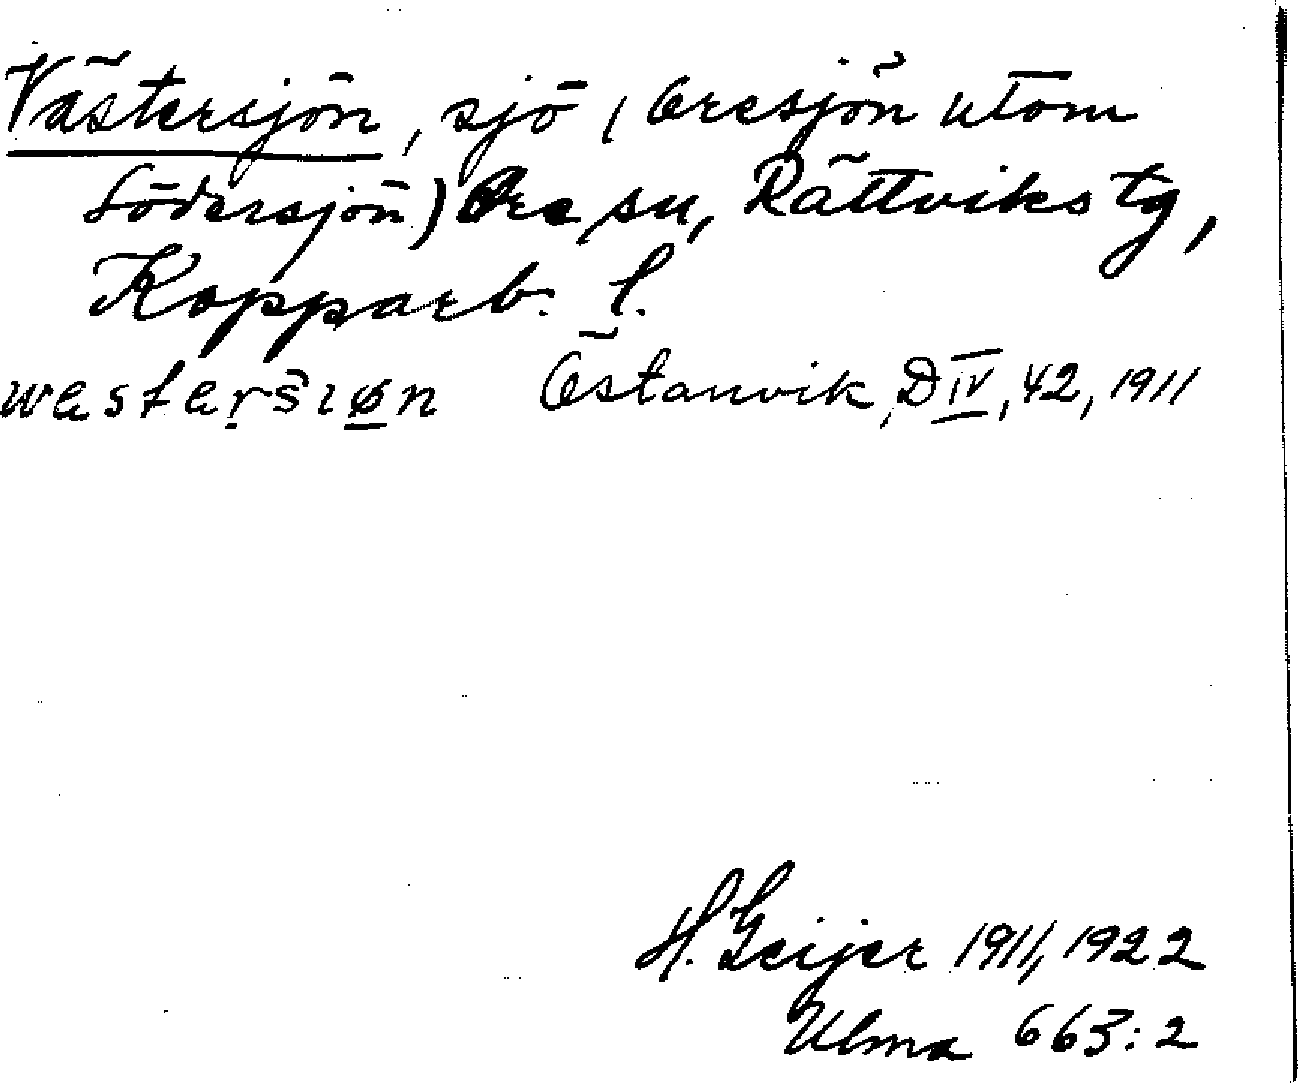 Västersjön, sjö (Oresjön utom
Södersjön) Ore sn, Rättviks tg,
Kopparb. l.
wæstærs̄ıøn Östanvik, D IV, 42, 1911
H. Geijer 1911, 1922
Ulma 663:2